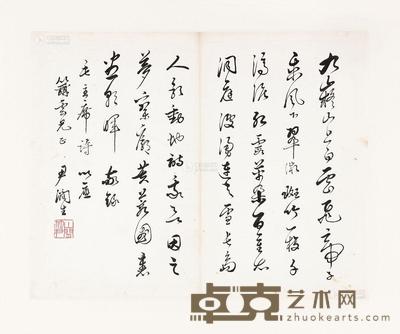 九嶷山上白雲飛帝子
乘風下翠微斑竹一枝千
滴淚紅霞萬朵百重衣
洞庭波涌連天雪長島
人歌動地詩我欲因之
夢寥廓芙蓉國裏
盡朝暉 敬錄
毛主席詩 以應
雲兄正 尹潤生
卓克艺术网
http://www.zhuokearts.com